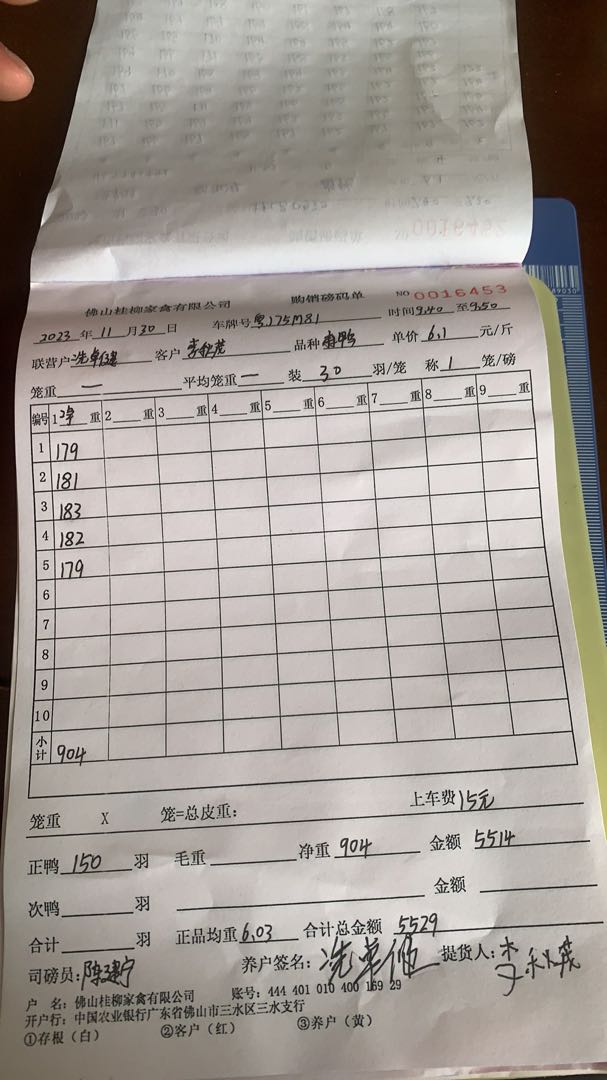 佛山桂柳家禽有限公司 购销磅码单 NO 0016453
2023 年 11 月 30 日 车牌号 粤J75M81 时间 9.40 至 9.50
联营户 冼卓健 客户 李秋茂 品种 单价 6.1 元/斤
笼重 一 平均笼重 一 装 30 羽/笼 称 1 笼/磅
编号 1 净 重 2 重 3 重 4 重 5 重 6 重 7 重 8 重 9 重
1 179
2 181
3 183
4 182
5 179
6
7
8
9
10
小计 904
笼重 X 笼=总皮重: 上车费 15元
正鸭 150 羽 毛重 净重 904 金额 5514
次鸭 羽 金额
合计 羽 正品均重 6.03 合计总金额 5529
司磅员: 陈建宁 养户签名: 冼卓健 提货人: 李秋茂
户 名: 佛山桂柳家禽有限公司 账号: 444 401 010 400 169 29
开户行: 中国农业银行广东省佛山市三水区三水支行
①存根（白） ②客户（红） ③养户（黄）